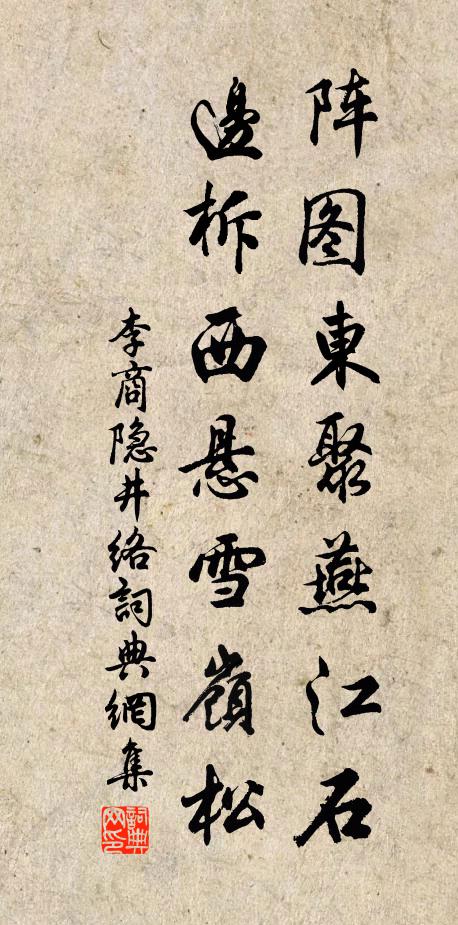 阵图東聚燕江石
邊柝西悬雪嶺松
李商隐井络詞典網集
詞典网印